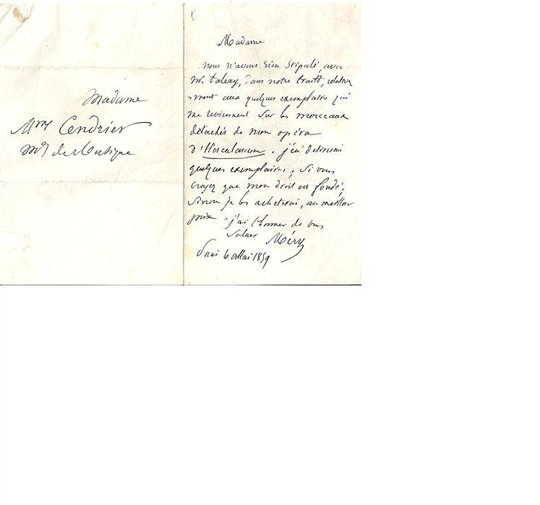 Madame
Mme Cendrier
Md de Musique
Madame
nous n'avons rien stipulé, avec
Mr. dans notre traité, relative
ment aux quelques exemplaires qui
me reviennent sur les morceaux
détachés de mon opéra
d'Herculanum. j'en désirerais
quelques exemplaires, si vous
croyez que mon droit est fondé;
sinon je les acheterais, au meilleur
prix. j'ai l'honneur de vous
saluer Méry
Paris 6 Mai 1859